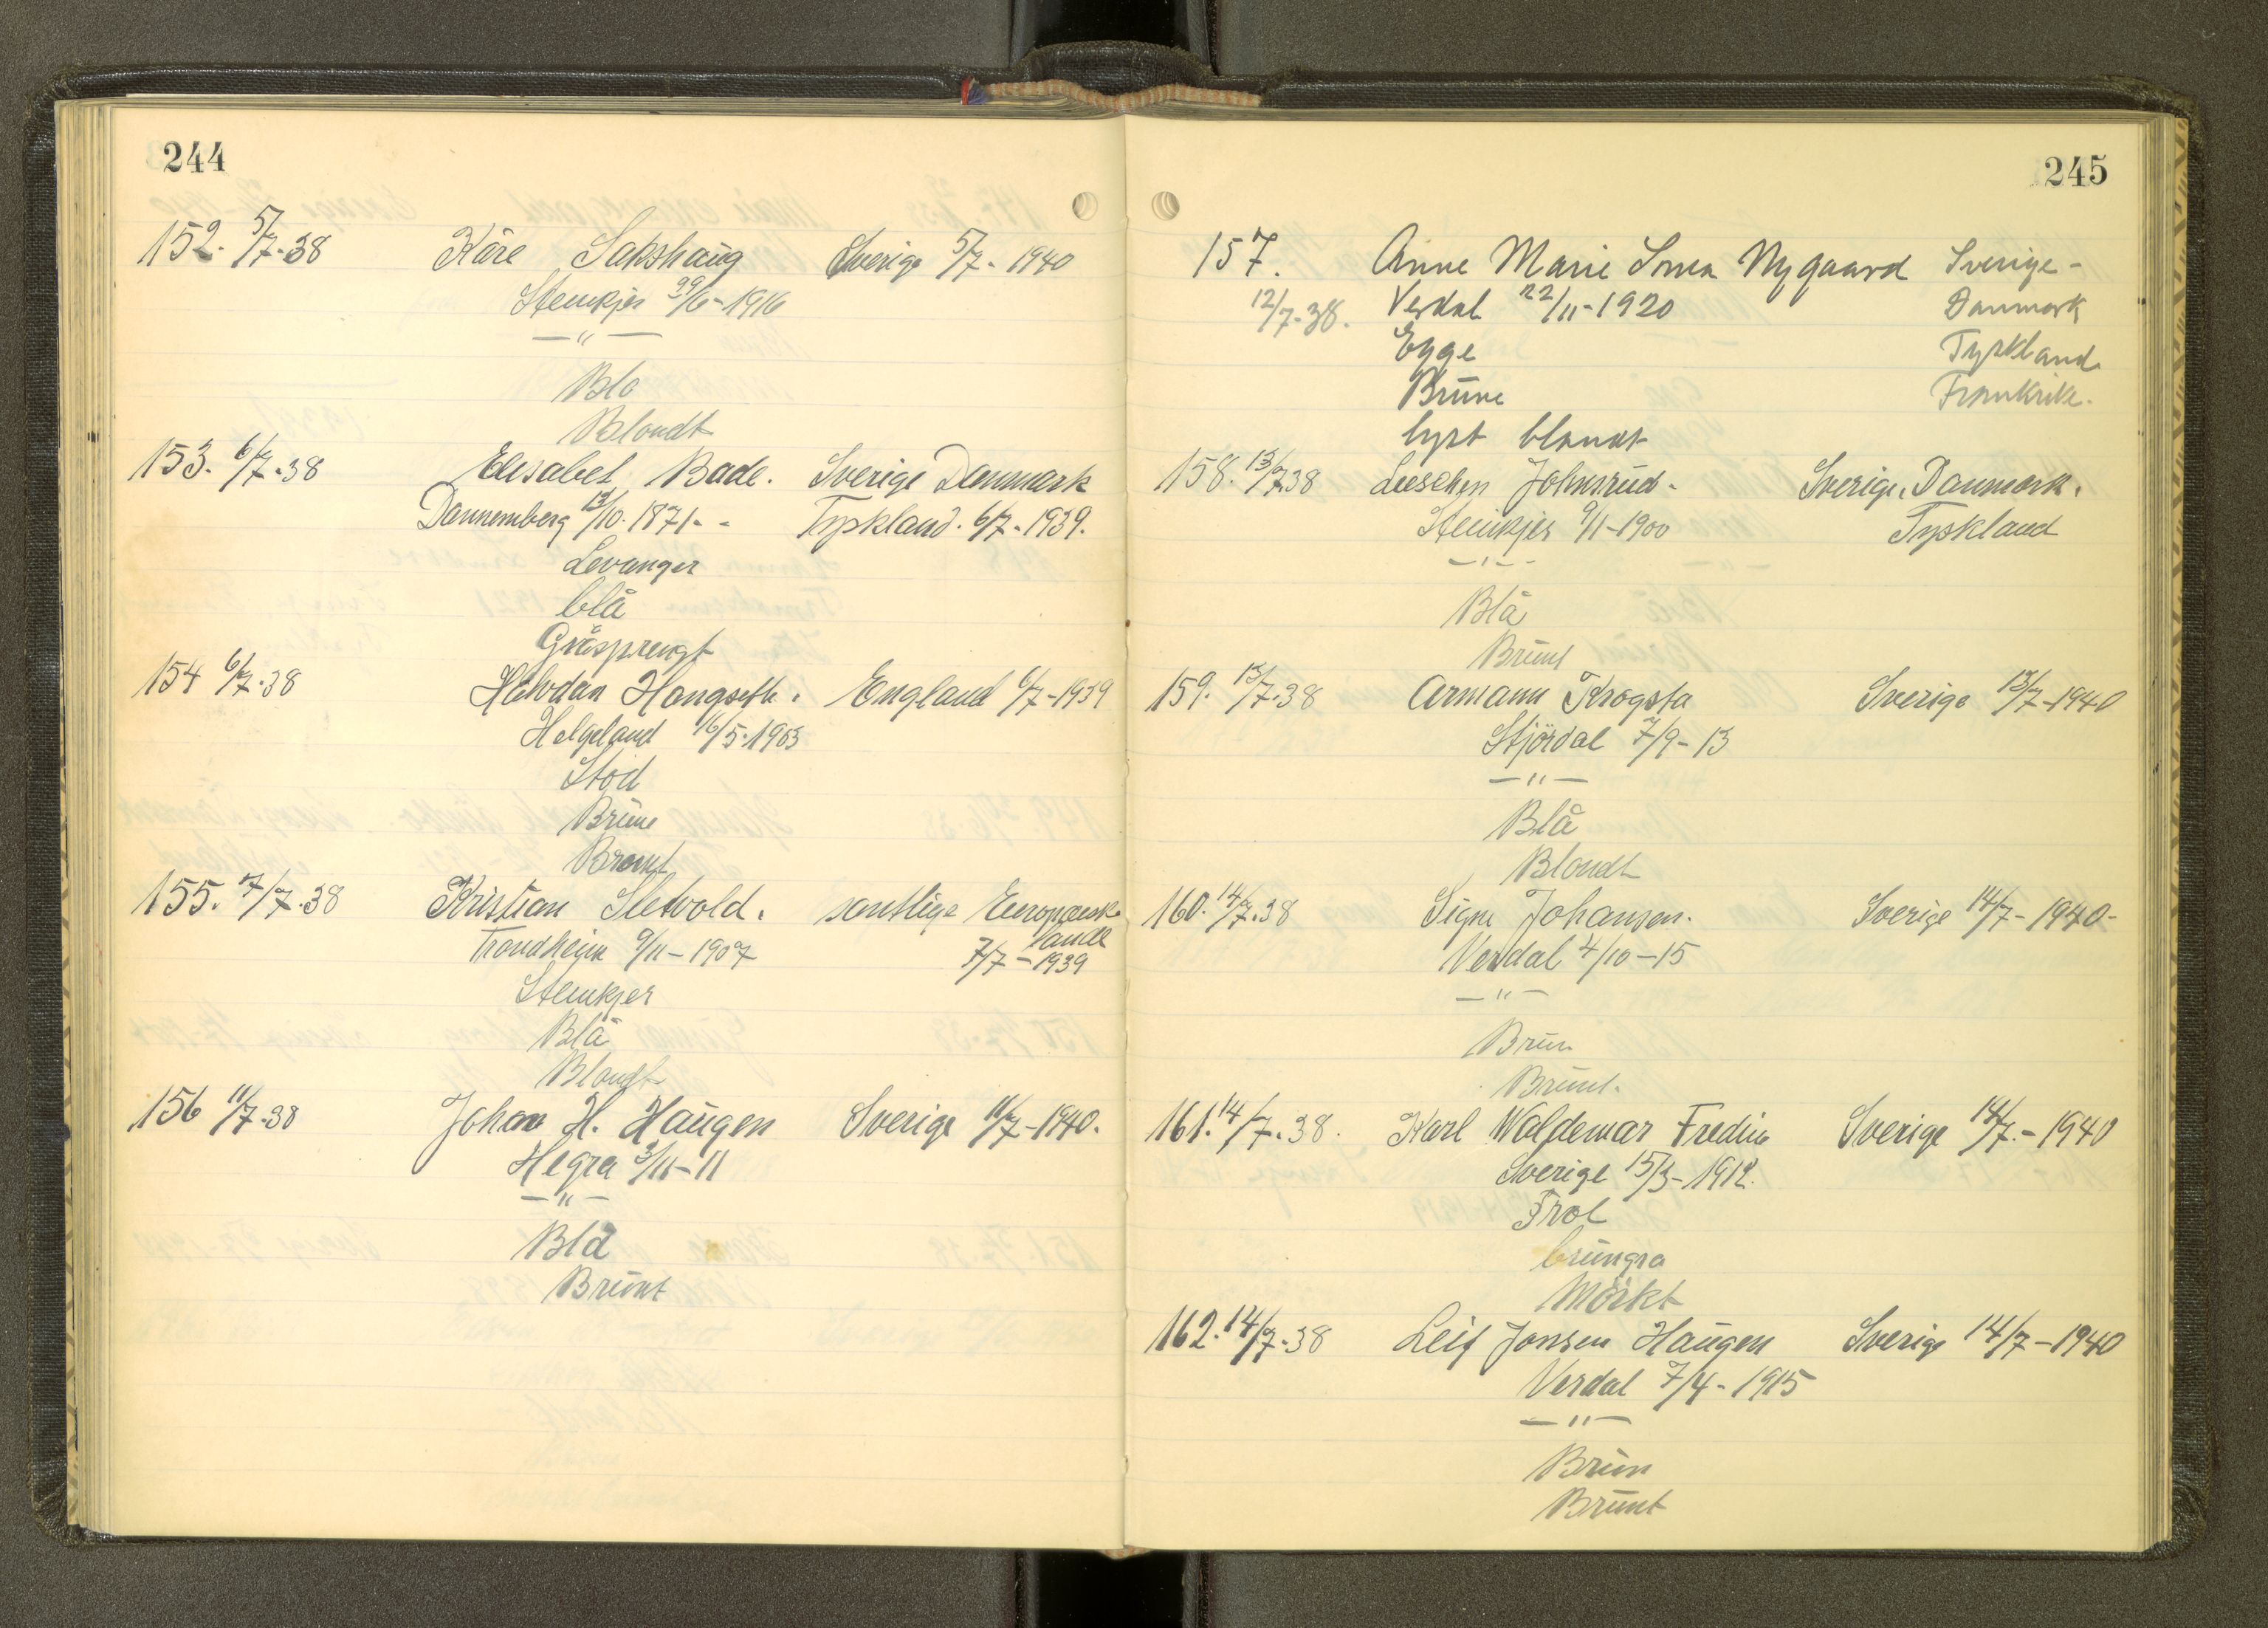 244
152. 5/7-38 Kåre Sakshaug Sverige 5/7-1940
Steinkjer 29/6-1916
—"—
Blå
Blondt
153. 6/7-38 Elisabet Bade. Sverige Danmark
Dannemberg 13/10. 1871. - Tyskland. 6/7-1939.
Levanger
blå
Gråsprengt
154 6/7-38 Halvdan Hongseth. England 6/7-1939
Helgeland 16/5-1903
Stod
Brune
Brunt
155. 7/7-38 Kristian Sletvold. samtlige Europæiske
lande
Trondheim 9/11-1907 7/7-1939
Steinkjer
Blå
Blondt
156 11/7-38 Johan H. Haugen Sverige 11/7-1940.
Hegra 3/11-11
—"—
Blå
Brunt
245
157. Anne Marie Nygaard Sverige-
12/7-38. Verdal 22/11-1920 Danmark
Egge Tyskland
Brune Frankrike.
lyst blondt
158. 13/7-38 Johnsrud. Sverige, Danmark.
Steinkjer 9/1-1900 Tyskland
—"—
Blå
Brunt
159. 13/7-38 Armann Krogsta Sverige 13/7-1940
Stjördal 7/9-13
—"—
Blå
Blondt
160. 14/7-38 Signe Johansen. Sverige 14/7-1940-
Verdal 4/10-15
—"—
Brun
Brunt.
161. 14/7.38. Karl Waldemar Fredin Sverige 14/7.-1940
Sverige 15/3-1912.
Frol
brungrå
Mörkt
162. 14/7-38 Leif Jonsen Haugen Sverige 14/7-1940
Verdal 7/4-1915
—"—
Brun
Brunt